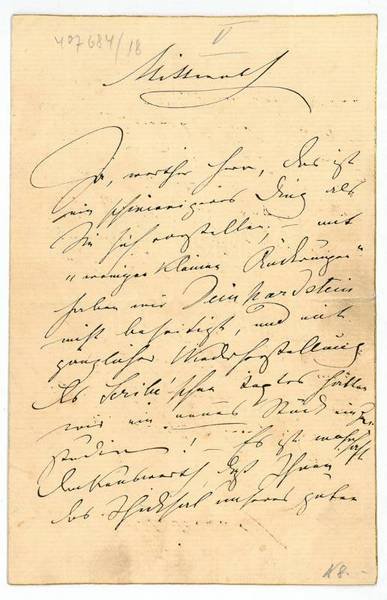 407684/18
V
Mittwoch
Ja, werther Herr, das ist
ein schwierigeres Ding als
Sie sich vorstellen, – mit
"wenigen kleinen Änderungen"
haben wir Deinhardstein
nicht beseitigt, und mit
gänzlicher Wiederherstellung
des Scribe'schen Textes hätten
wir ein neues Stück zu
studiren! – Es ist wahrhaft
dankenswerth, daß Ihnen
das Schicksal unseres guten
N8.-